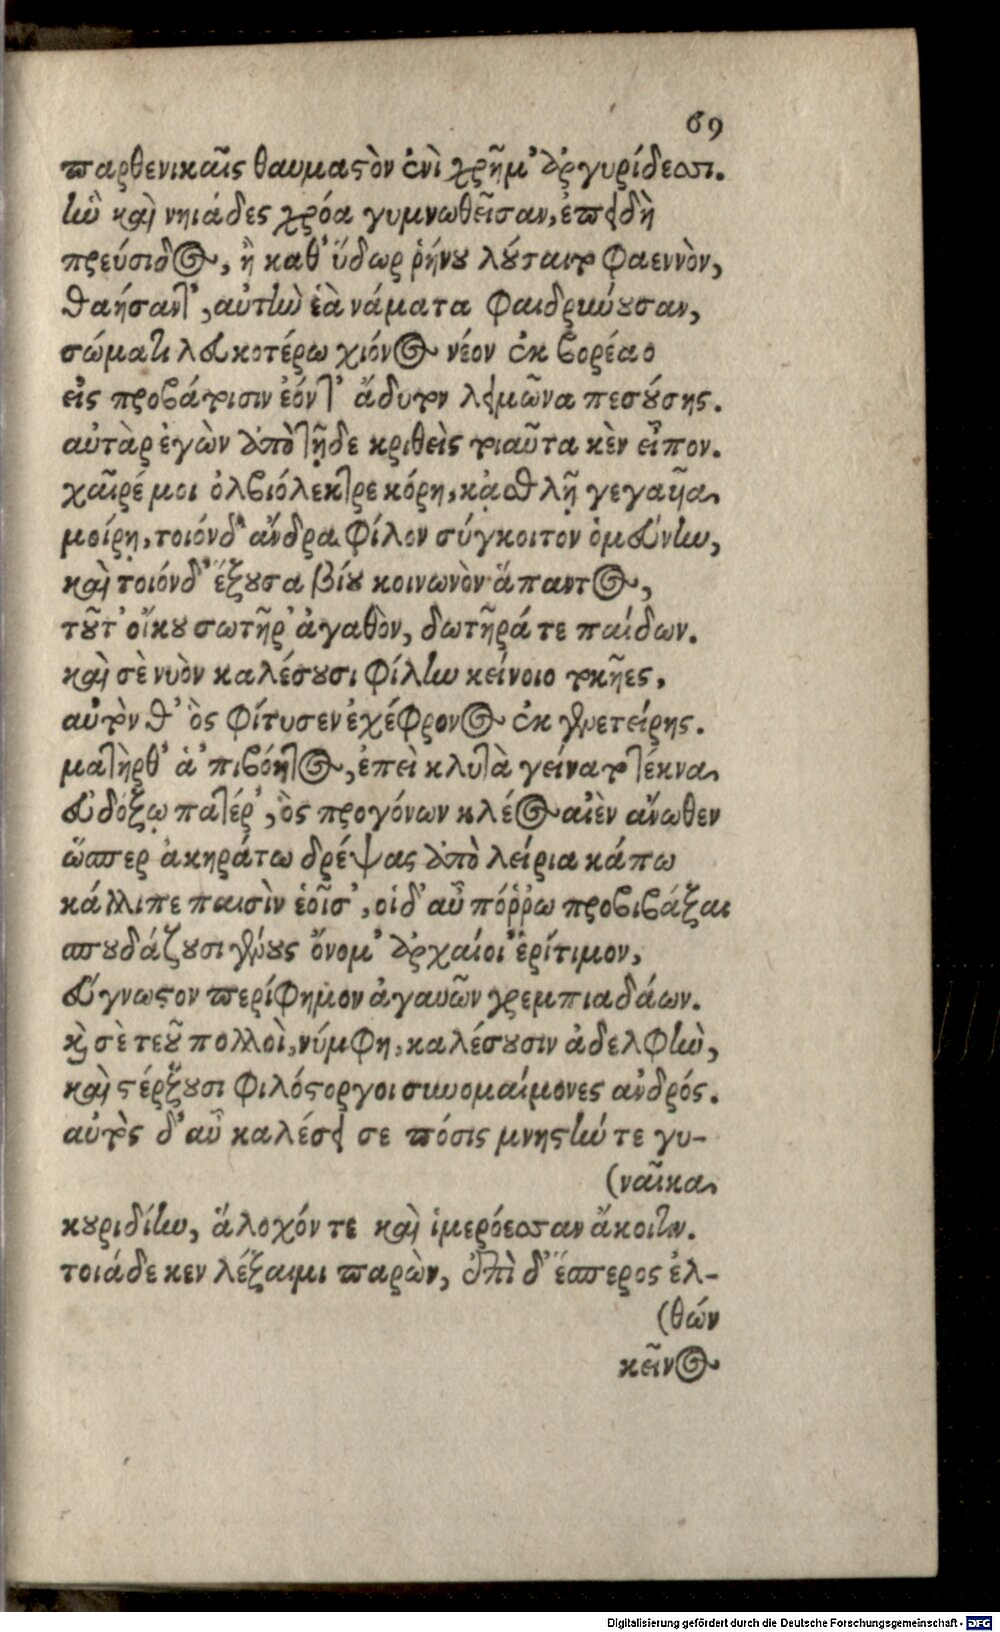 69
παρθενικαῖς θαυμαστὸν ἐνὶ χρῆμ' ἀργυρίδεσσι.
ἣν καὶ νηιάδες χρόα γυμνωθεῖσαν, ἐπειδὴ
πρεύσιδος, ἢ καθ' ὕδωρ ῥήνου λύσαιτο φαεννὸν,
θαήσαντ', αὐτὴν ἑὰ νάματα φαιδρύνουσαν,
σώματι λευκοτέρω χιόνος νέον ἐκ βορέαο
εἰς προβάτοισιν ἐόντ' ἄδυτον λειμῶνα πεσούσης.
αὐτὰρ ἐγὼν ἀπὸ τῇδε κριθεὶς τοιαῦτα κὲν εἶπον.
χαῖρέ μοι ὀλβιόλεκτρε κόρη, κᾀσθλῇ γεγαυῖα
μοίρῃ, τοιόνδ' ἄνδρα φίλον σύγκοιτον ὁμεύνην,
καὶ τοιόνδ' ἕξουσα βίου κοινωνὸν ἅπαντος,
τοῦτ' οἴκου σωτῆρ' ἀγαθὸν, δωτῆρά τε παίδων.
καὶ σὲ νυὸν καλέσουσι φίλην κείνοιο τοκῆες,
αὐτόν θ' ὃς φίτυσεν ἐχέφρονος ἐκ γενετείρης.
ματὴρ θ' ἁ 'πιβόητος, ἐπεὶ κλυτὰ γείνατο τέκνα
εὐδόξῳ πατέρ', ὃς προγόνων κλέος αἰὲν ἄνωθεν
ὥσπερ ἀκηράτω δρέψας ἀπὸ λείρια κάπω
κάλλιπε παισὶν ἑοῖσ', οἱ δ' αὖ πόῤῥω προβιβάξαι
σπουδάζουσι γένους ὄνομ' ἀρχαίοι' ἐρίτιμον,
εὔγνωστον περίφημον ἀγαυῶν χρεμπιαδάων.
καὶ σὲ τεῦ πολλοὶ, νύμφη, καλέσουσιν ἀδελφὴν,
καὶ στέρξουσι φιλόστοργοι συνομαίμονες ἀνδρός.
αὐτὸς δ' αὖ καλέσει σε πόσις μνηστήν τε γυ-
(ναῖκα
κουριδίην, ἄλοχόν τε καὶ ἱμερόεσσαν ἄκοιτιν.
τοιάδε κεν λέξαιμι παρὼν, ἐπὶ δ' ἕσπερος ἐλ-
(θών
κεῖνος
Digitalisierung gefördert durch die Deutsche Forschungsgemeinschaft - DFG